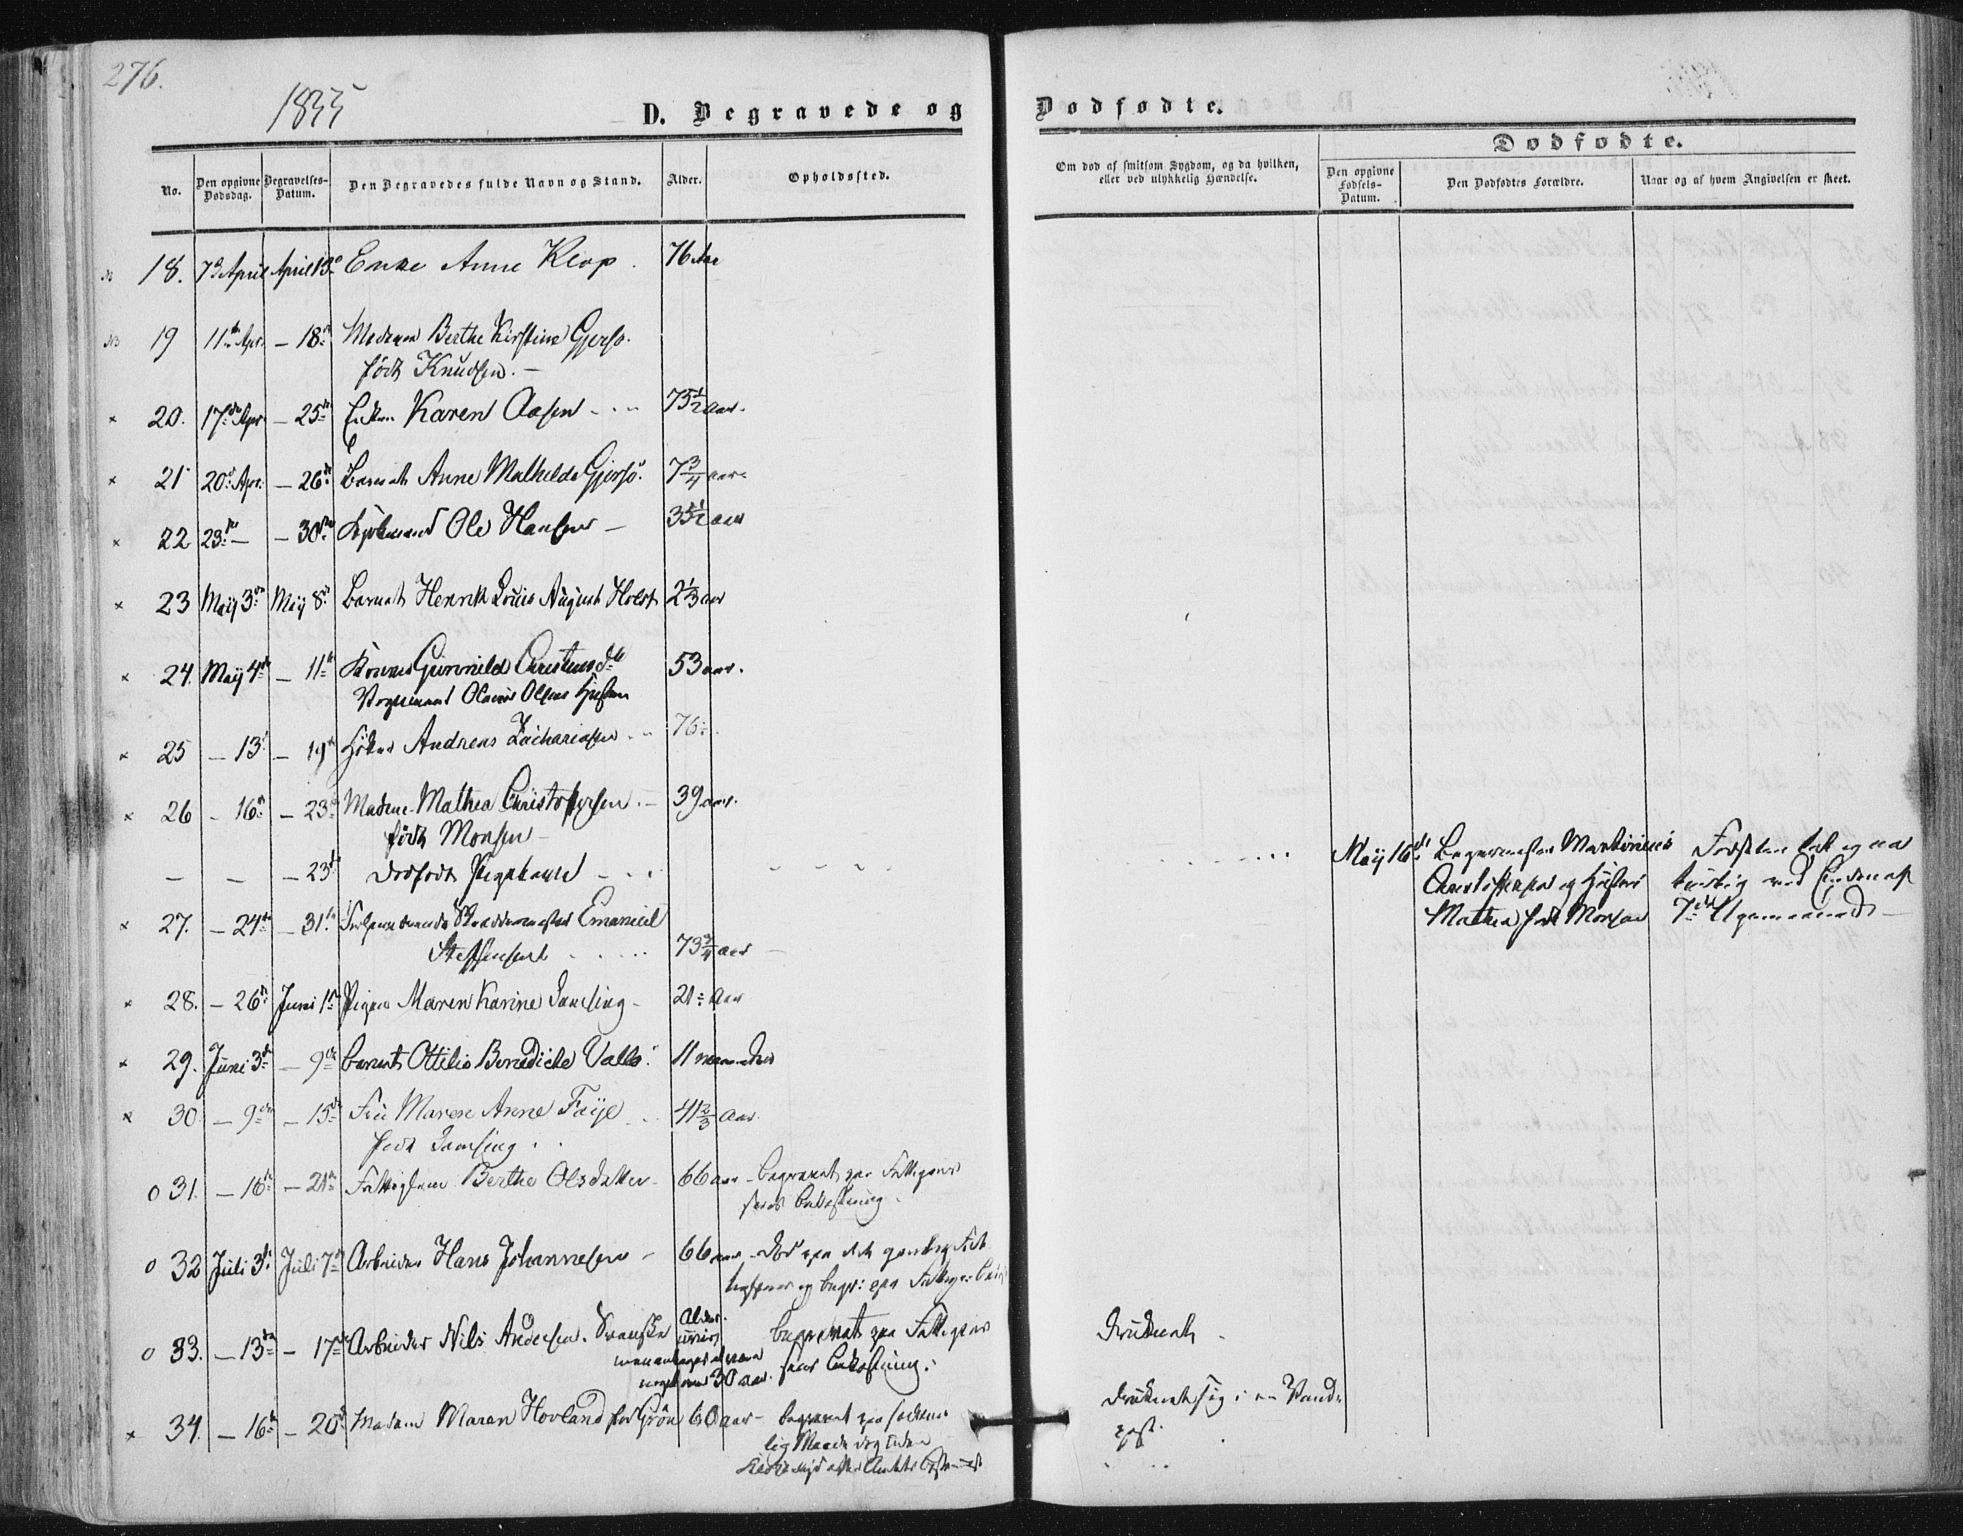 276.
1855
D. Begravede og
Dødfødte.
No.
Den opgivne Dødsdag.
Begravelses-Datum.
Den Begravedes fulde Navn og Stand.
Alder.
Opholdssted.
Om død af smitsom Sygdom, og da hvilken, eller ved ulykkelig Hændelse.
Dødfødte.
Den opgivne Fødsels-Datum.
Den Dødfødtes Forældre.
Naar og af hvem Angivelsen er skeet.
18. 7de April April 13de Enke Anne Klop. 76 Aar
19 11te Apr. — 18de Madam Berthe Kirstine Gjersø.
født Knudsen. —
20. 17de Apr. — 25de Enken Karen Aasen 75½ aar.
21 20de Apr. — 26de Barnet Anne Mathilde Gjersø. 7¾ aar
22 23de — — 30te Ole Hansen — 35½ aar
23 Maÿ 3die Maÿ 8de Barnet Henrik Louis August Holst 2⅓ aar
24. Maÿ 4de — 11te Konen Gunnild Christensd.
Vognmand Olaus Olsens Hustru 53 aar.
25 — 13de — 19de Andreas Zachariasen 76
26 — 16de — 23de Madme Mathea Christophersen — 39 aar.
født Monsen —
— — — 23de Dødfødt Pigebarn
Maÿ 16de Bagermester Martinius
Christophersen og Hustru
Mathea født Monsen
7de
27. — 24de — 31te Skræddermester Emanuel
Steffensen 73¾ aar —
28. — 26de Juni 1ste Pigen Maren Karine Samsing — 21 Aar
29. Juni 3die — 9de Barnet Ottilie Benedicte Valle. 11 maaneder
30 — 9de — 15de Fru Maren Anne Faÿe 41⅔ Aar
født Samsing
o 31. — 16de — 21de Fattiglem Berthe Olsdatter 66 aar — begravet paa Fattigvæ-
sens Bekostning.
o 32 Juli 3die Juli 7de Arbeider Hans Johannesen — 66 aar — død paa
og begr: paa
o 33. — 13de — 17de Arbeider Nils Andersen. Svenske Alder
30 aar. begravet paa Fattigvæ-
sens Bekostning.
Druknet.
34. — 16de — 20de Madam Maren Hovland før Grøn 60 aar — begravet paa
lig Maade dog uden
druknet sig i en Vand-